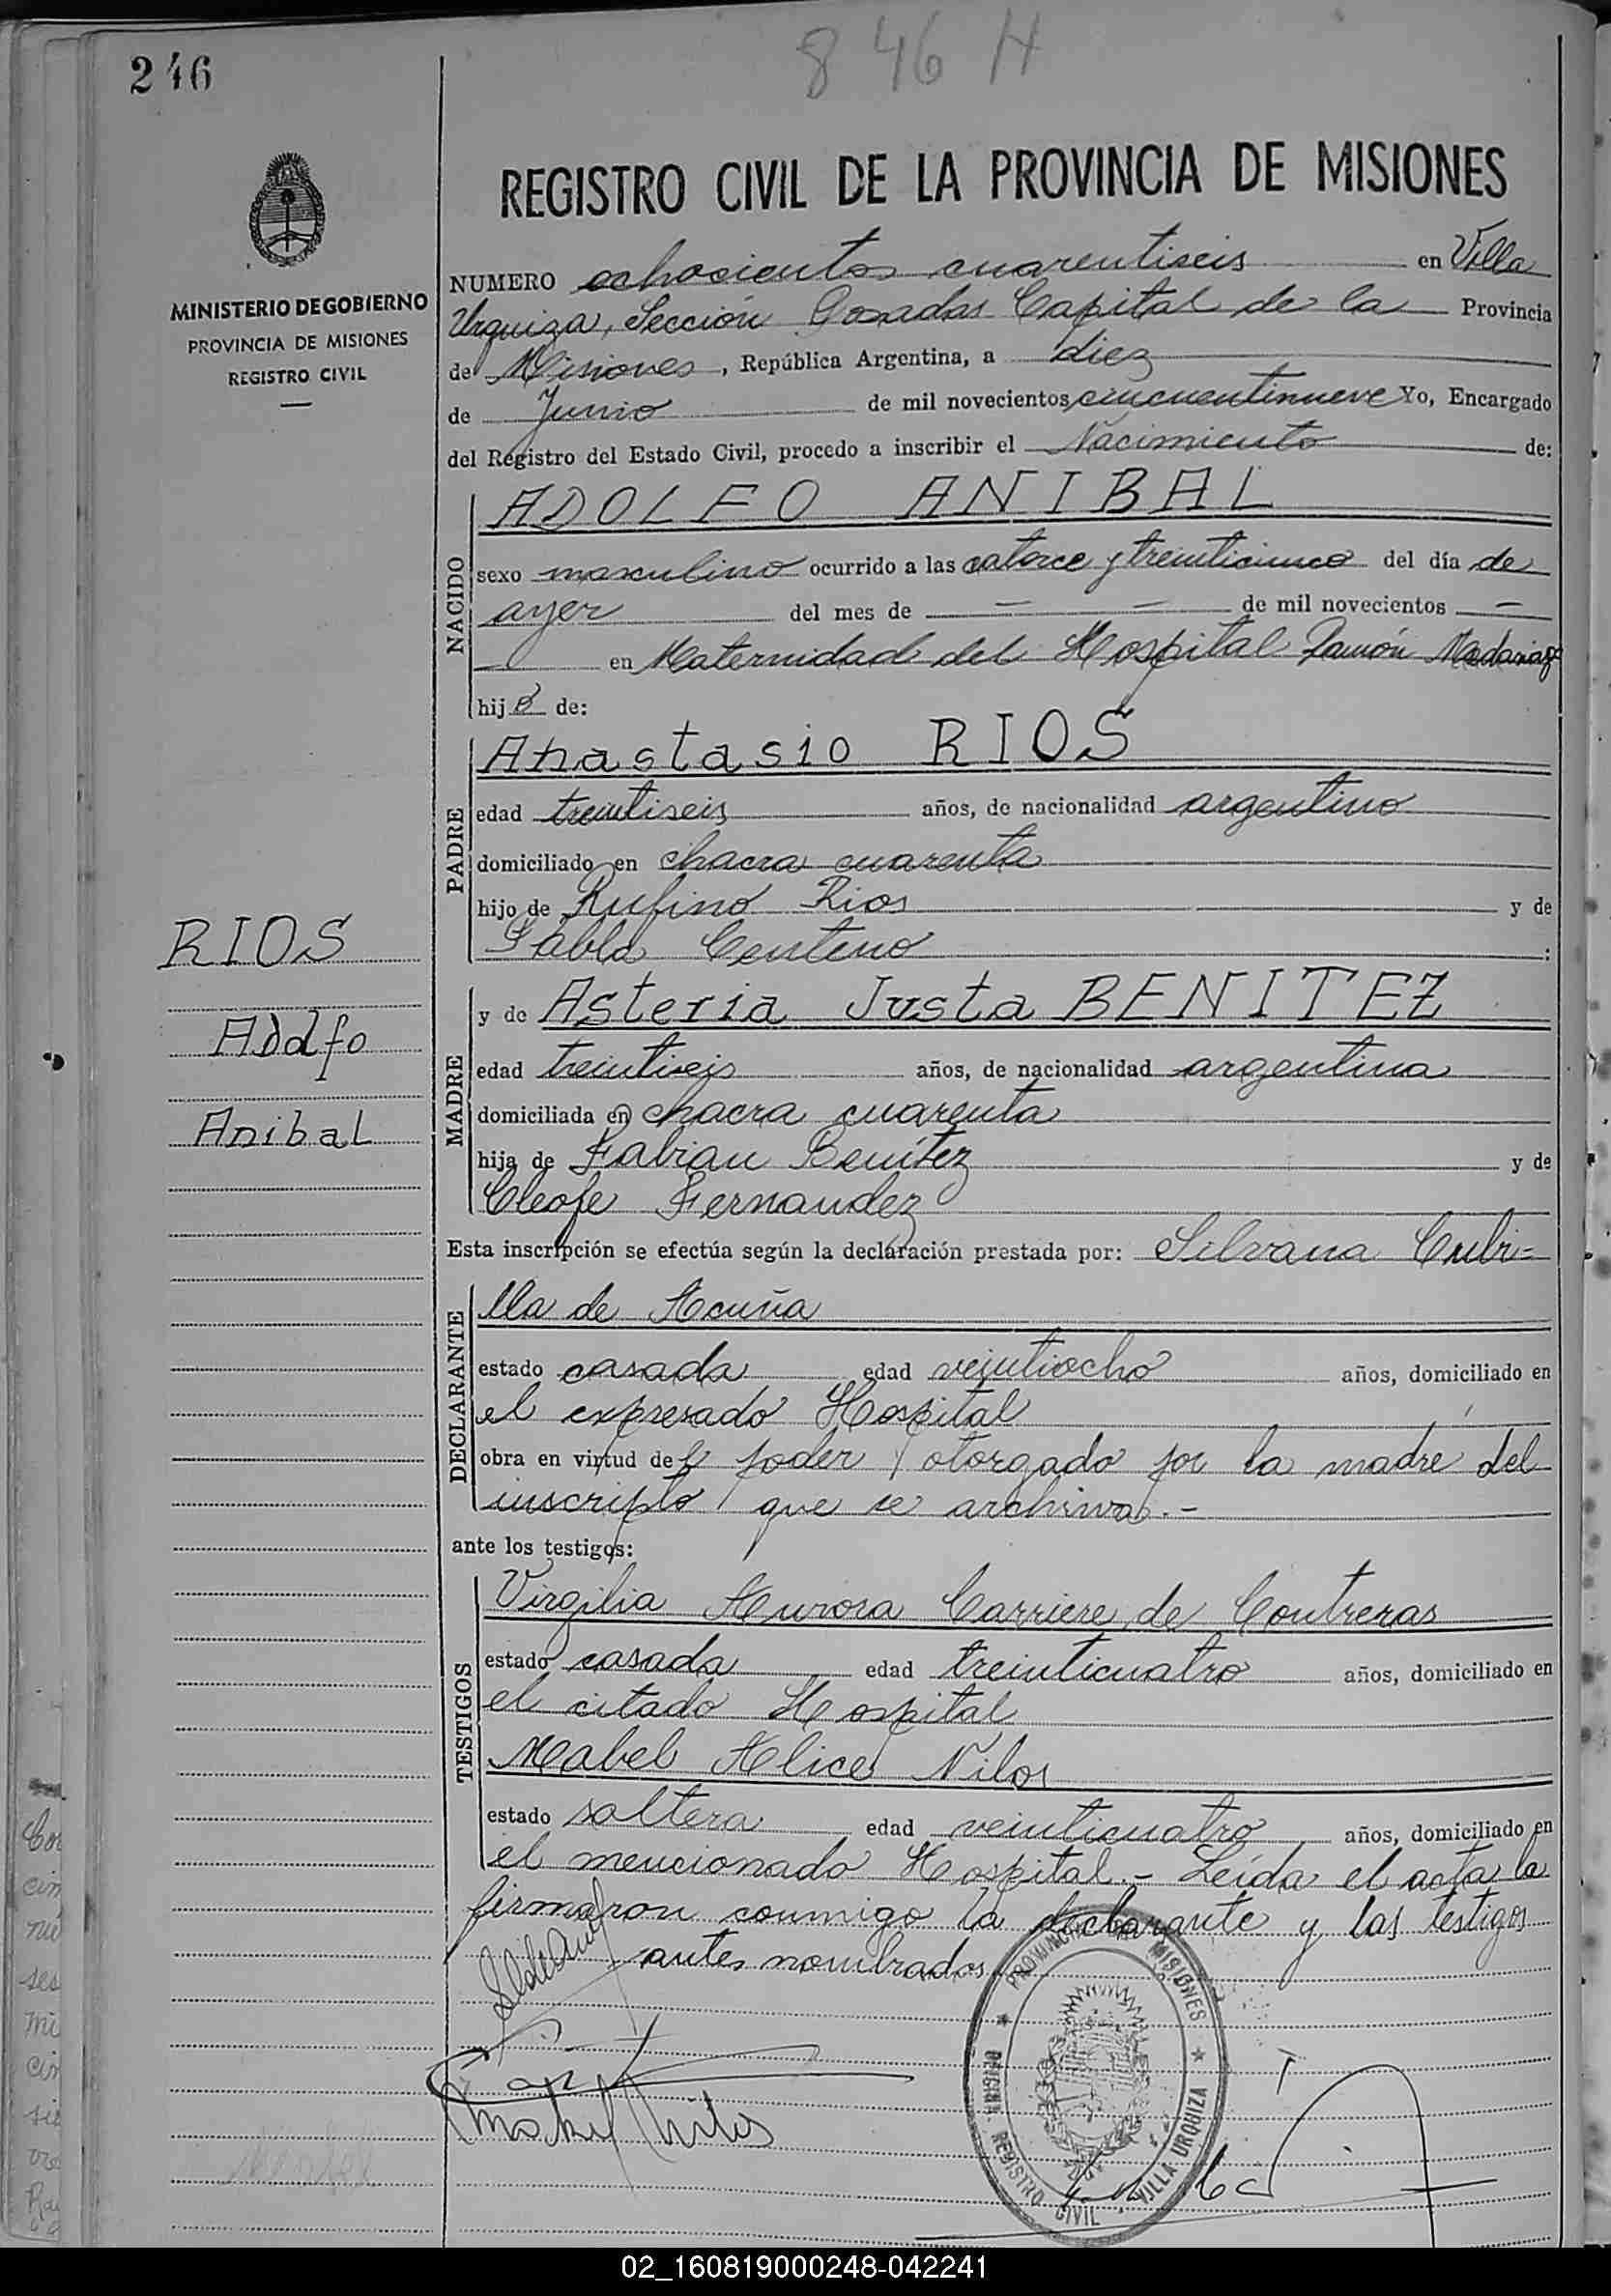 246
846 H
REGISTRO CIVIL DE LA PROVINCIA DE MISIONES
MINISTERIO DE GOBIERNO
PROVINCIA DE MISIONES
REGISTRO CIVIL
NUMERO ochocientos cuarentiseis en Villa
Urquiza, Sección Posadas Capital de la Provincia
de Misiones, República Argentina, a diez
de Junio de mil novecientos cincuentinueve Yo, Encargado
del Registro del Estado Civil, procedo a inscribir el Nacimiento de:
NACIDO
ADOLFO ANIBAL
sexo masculino ocurrido a las catorce y treinticinco del día de
ayer del mes de — — de mil novecientos —
— en Maternidad del Hospital Ramón Madariaga
hijo de:
PADRE
Anastasio RIOS
edad treintiseis años, de nacionalidad argentino
domiciliado en chacra cuarenta
hijo de Rufino Rios y de
Pabla Centeno :
RIOS
Adolfo
Anibal
MADRE
y de Asteria Justa BENITEZ
edad treintiseis años, de nacionalidad argentina
domiciliada en chacra cuarenta
hija de Fabian Benítez y de
Cleofe Fernandez
Esta inscripción se efectúa según la declaración prestada por: Silvana Cubi=
DECLARANTE
lla de Acuña
estado casada edad veintiocho años, domiciliado en
el expresado Hospital
obra en virtud del poder otorgado por la madre del
inscripto que se archiva.-
ante los testigos:
TESTIGOS
Virgilia Aurora Carriere de Contreras
estado casada edad treinticuatro años, domiciliado en
el citado Hospital
Mabel Alice Nilos
estado soltera edad veinticuatro años, domiciliado en
el mencionado Hospital.- Leída el acta la
firmaron conmigo la declarante y las testigos
antes nombradas.
Mabel Nilos
PROVINCIA DE MISIONES
OFICINA - REGISTRO CIVIL - VILLA URQUIZA
02_160819000248-042241